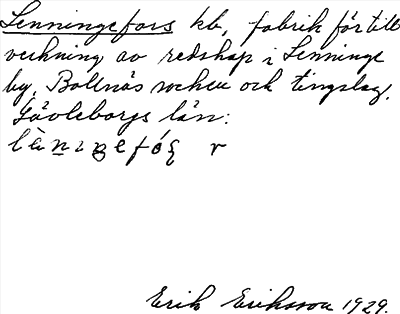 Lenningefors kb, fabrik för till
verkning av redskap i Lenninge
by, Bollnäs socken och tingslag,
Gävleborgs län:
Erik Eriksson 1929.